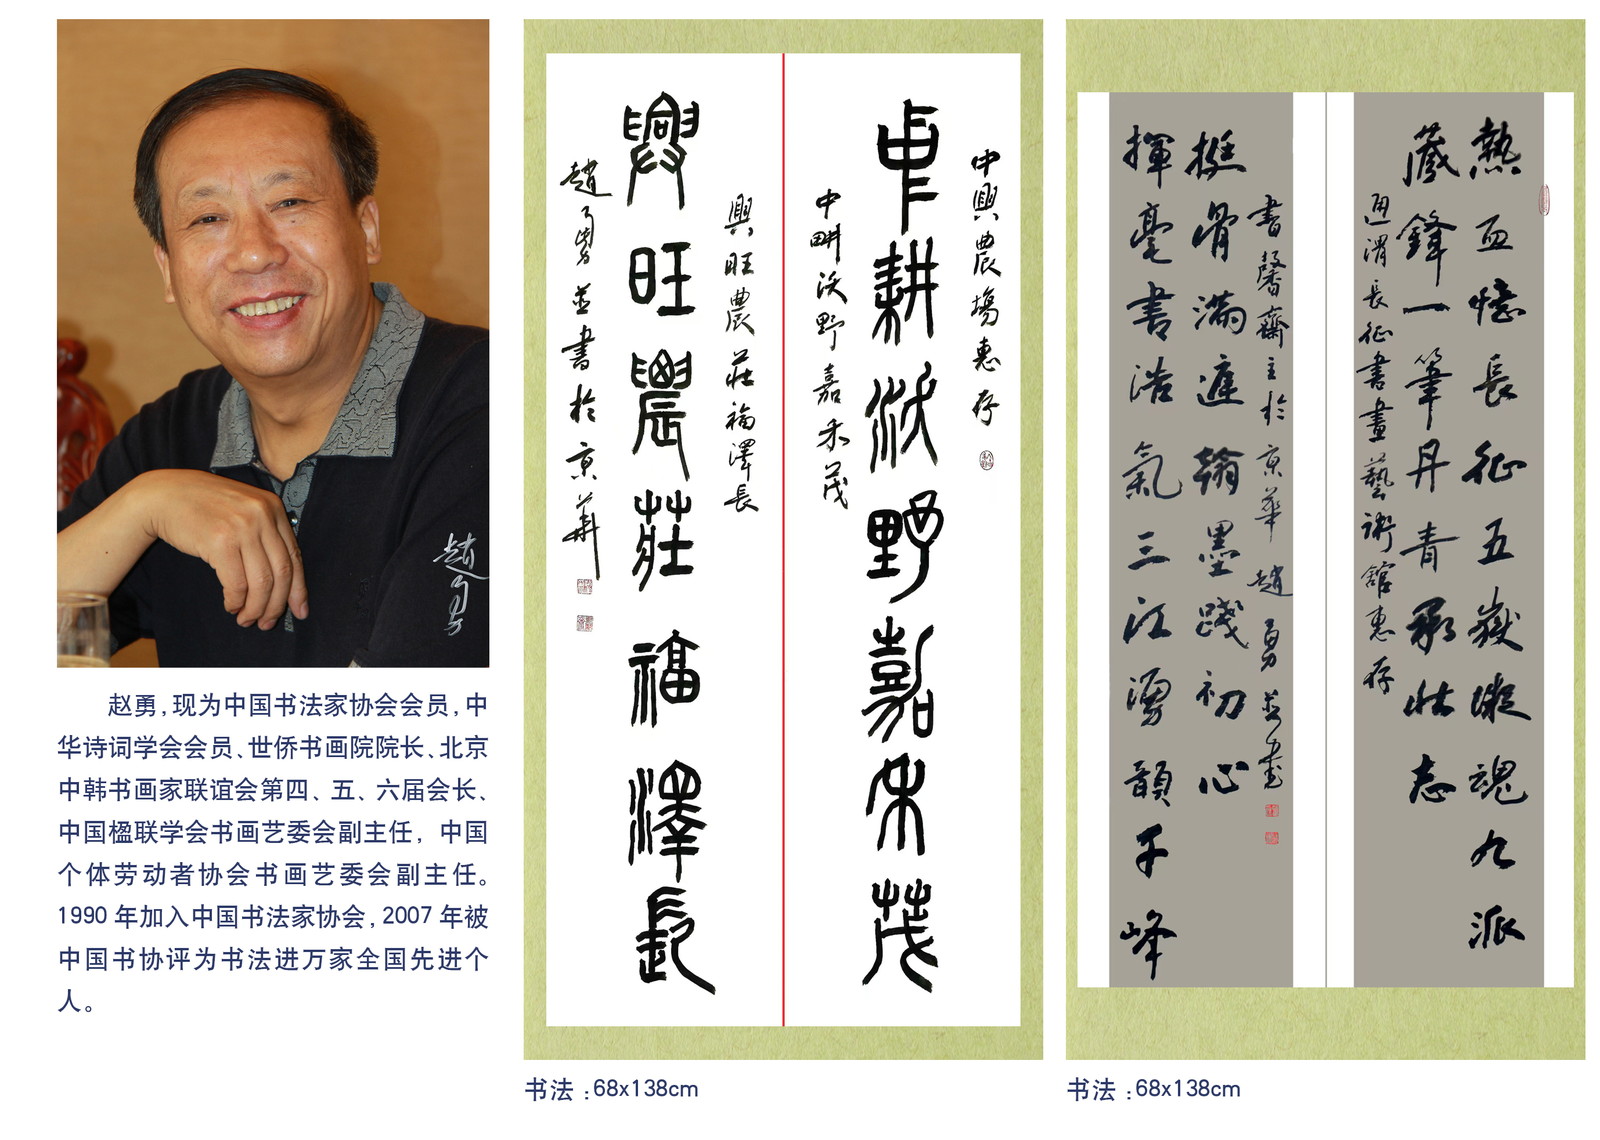 趙勇
赵勇,现为中国书法家协会会员,中
华诗词学会会员、世侨书画院院长、北京
中韩书画家联谊会第四、五、六届会长、
中国楹联学会书画艺委会副主任, 中国
个体劳动者协会书画艺委会副主任。
1990 年加入中国书法家协会, 2007 年被
中国书协评为书法进万家全国先进个
人。
中興農場惠存
中耕沃野嘉禾茂
中畊沃野嘉禾茂
興旺農莊福澤長
興旺農莊福澤長
趙勇并書於京華
书法 : 68x138cm
熱血憶長征五嶽凝魂九派
藏鋒一筆丹青承壯志
通渭長征書畫藝術館惠存
挺骨滿遮翰墨踐初心
揮毫書浩氣三江湧韻千峰
書馨齋主於京華趙勇并書
书法 : 68x138cm